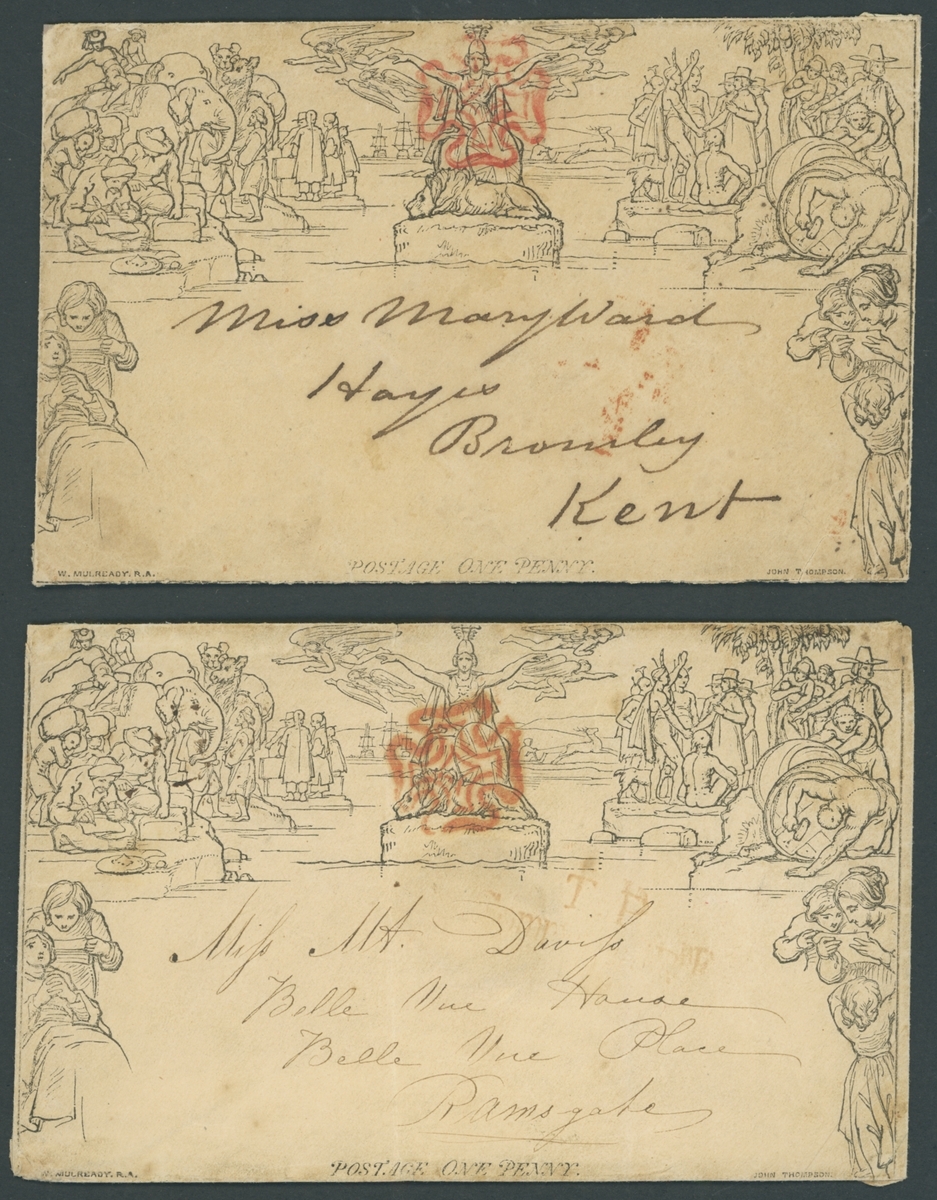 Miss Mary Ward
Hayes
Bromley
Kent
POSTAGE ONE PENNY.
W. MULREADY. R.A.
JOHN THOMPSON.
Miss
Belle Vue House
Belle Vue Place
Ramsgate
POSTAGE ONE PENNY.
W. MULREADY. R.A.
JOHN THOMPSON.